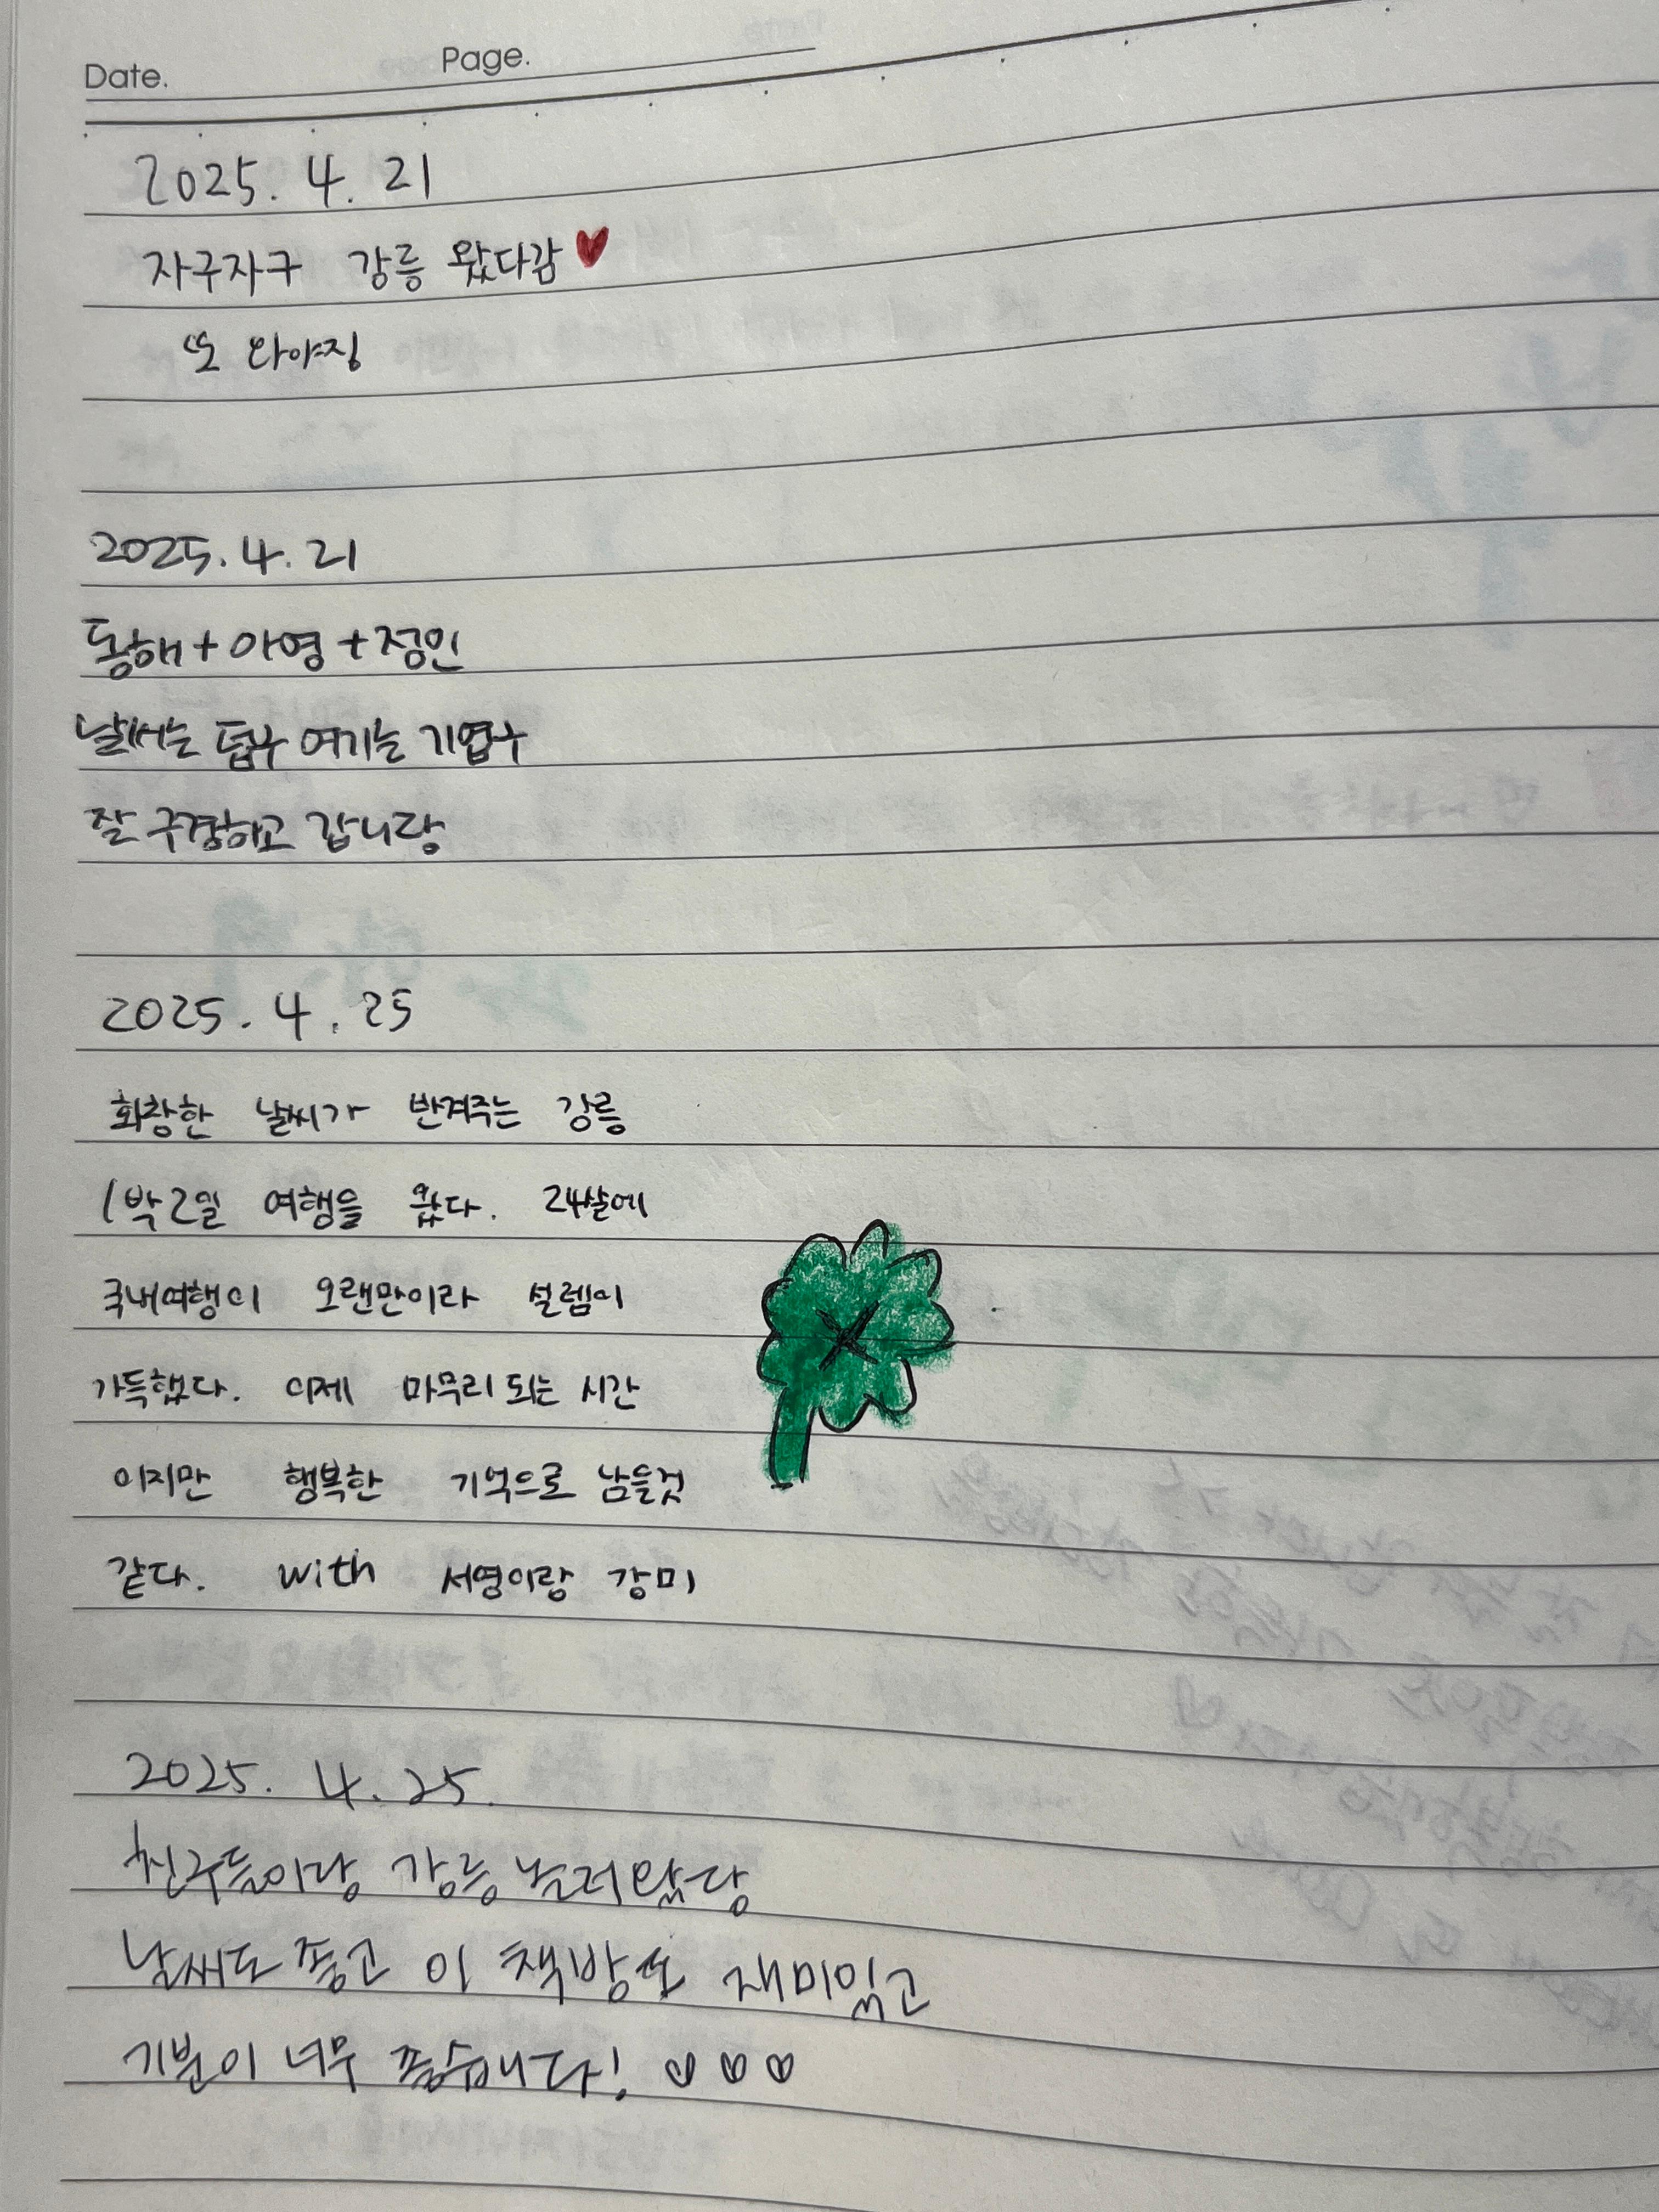 Date. Page.
2025. 4. 21
자구자구 강릉 왔다감♥
또 와야징
2025. 4. 21
동해+아영+정인
날씨는 덥구 여기는 기엽구
잘 구경하고 갑니당
2025. 4. 25
화창한 날씨가 반겨주는 강릉
1박2일 여행을 왔다. 24살에
국내여행이 오랜만이라 설렘이
가득했다. 이제 마무리 되는 시간
이지만 행복한 기억으로 남을것
같다. with 서영이랑 강미
2025. 4. 25.
친구들이랑 강릉 놀러왔당
날씨도 좋고 이 책방도 재미있고
기분이 너무 좋습니다! ♡♡♡